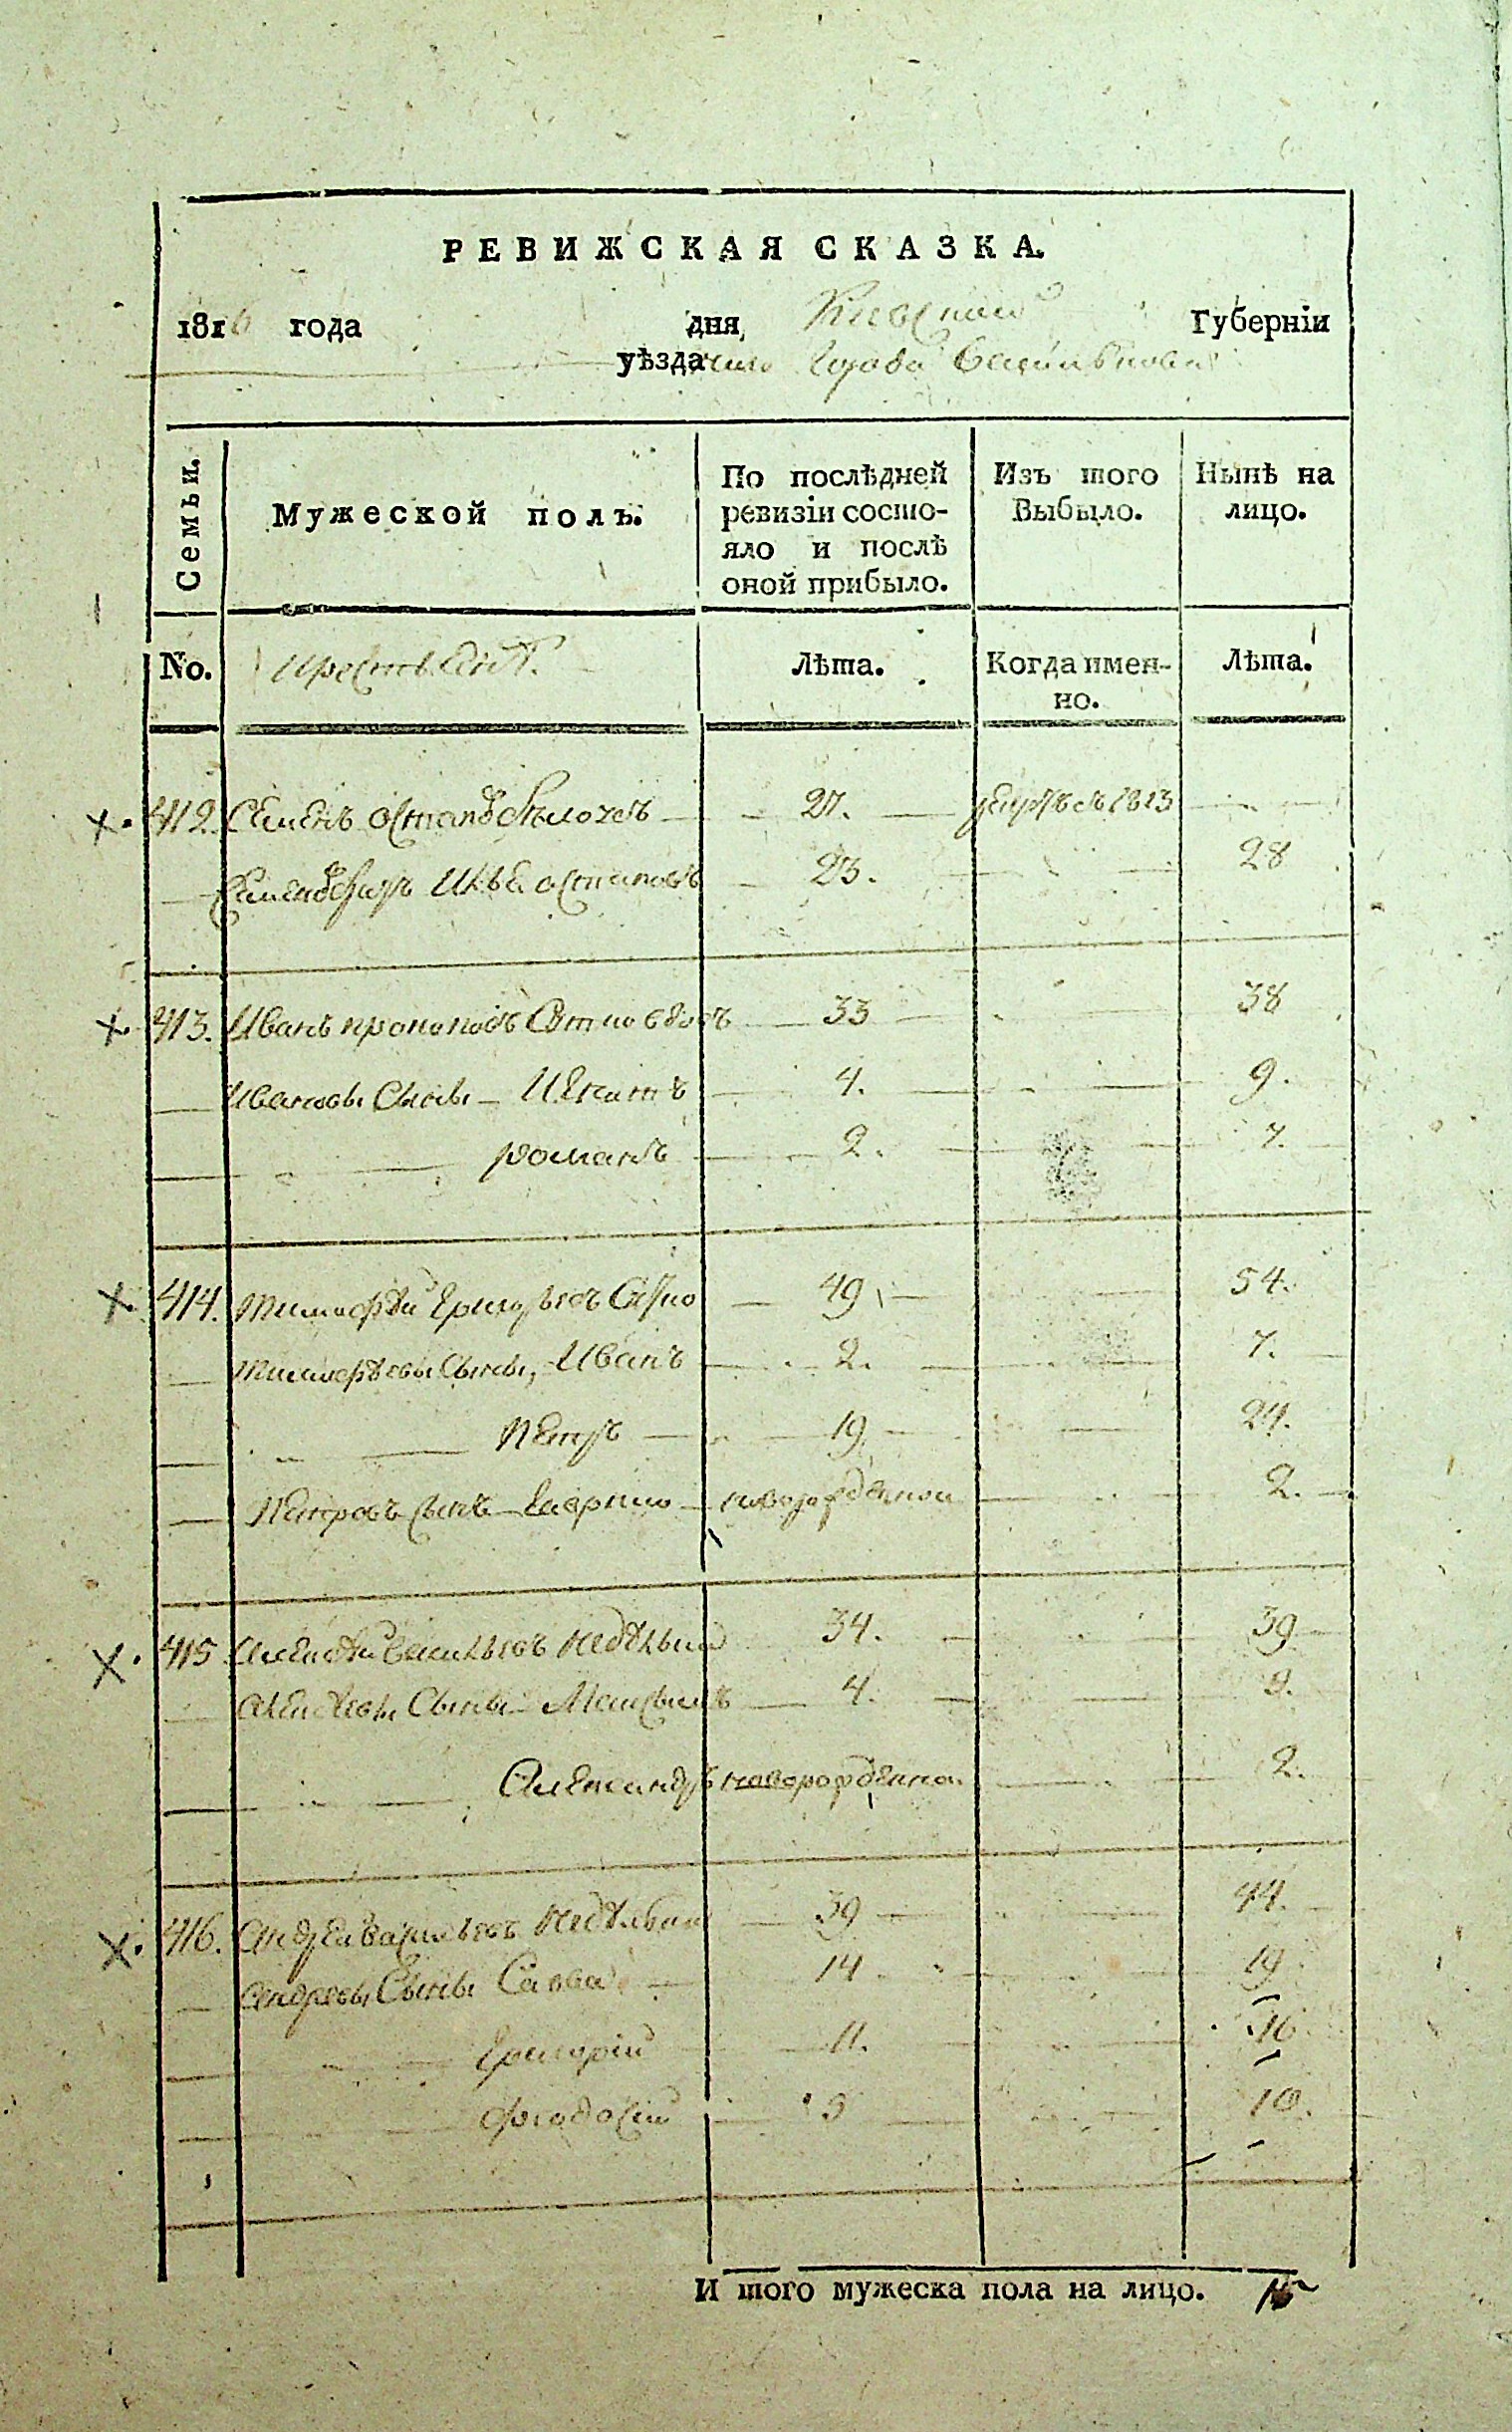 РЕВИЖСКАЯ СКАЗКА.
1816 года дня, Киевской Губерніи
уѣзда города Василькова
Семьи.
Мужеской полъ.
По послѣдней ревизіи состояло и послѣ оной прибыло.
Изъ того Выбыло.
Нынѣ на лицо.
No.
Крестьянъ.
Лѣта.
Когда имен-
но.
Лѣта.
412. Семенъ 27. 1813
23. 28
413. Иванъ прокоповъ 33 38
Ивановы Сыны Игнатъ 4. 9.
романъ 2. 7.
414. Тимофѣй Григорьевъ 49 54.
Тимофѣевы Сыны, Иванъ 2. 7.
Петръ 19 24.
Петровъ сынъ Гаврило новорожденной 2.
415 Алексѣй Васильевъ 34. 39
Алексѣевы Сыны 4. 9.
Александръ новорожденной 2.
416. Андрей Васильевъ 39 44.
Андреевы Сыны Савва 14 19
Григорій 11. 16
Феодосій 5 10.
И того мужеска пола на лицо. 15